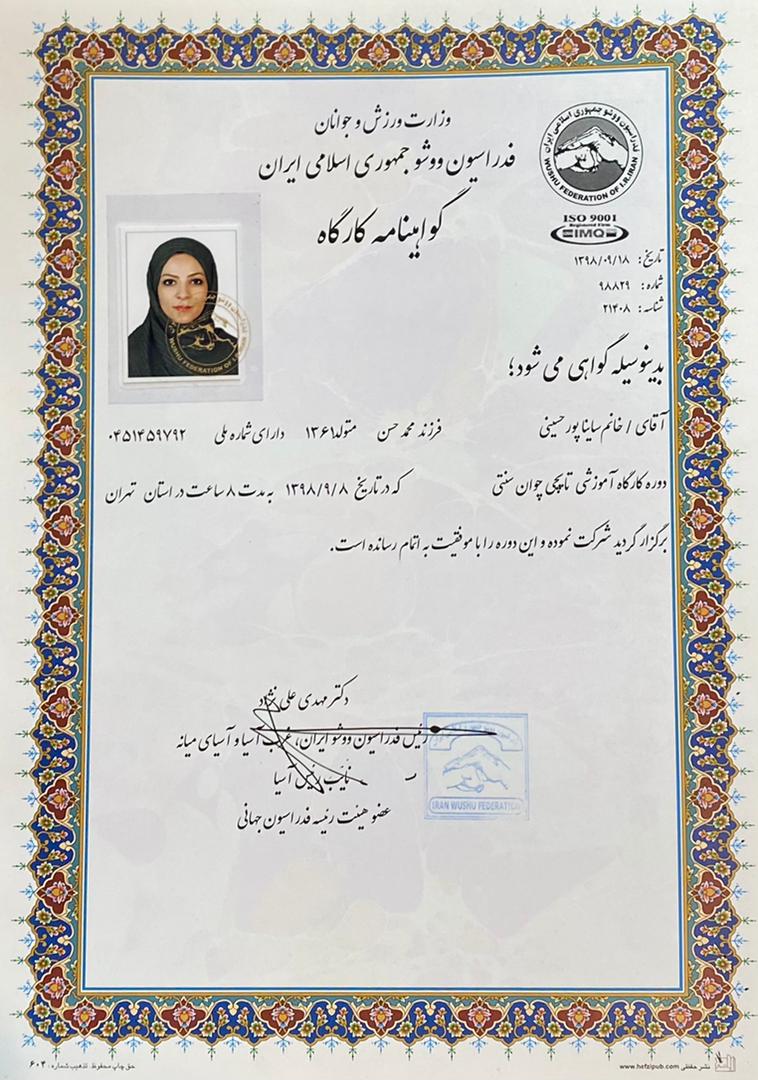 وزارت ورزش و جوانان
فدراسیون ووشو جمهوری اسلامی ایران
گواهینامه کارگاه
فدراسیون ووشو جمهوری اسلامی ایران
WUSHU FEDERATION OF I.R.IRAN
ISO 9001
Registered Firm
IMQ
تاریخ: ۱۳۹۸/۰۹/۱۸
شماره: ۹۸۸۲۹
شناسه: ۲۱۴۰۸
WUSHU FEDERATION OF
بدینوسیله گواهی می شود؛
آقای / خانم ساینا پورحسینی فرزند محمدحسن متولد ۱۳۶۱ دارای شماره ملی ۰۴۵۱۴۵۹۷۹۲
دوره کارگاه آموزشی تایچی چوان سنتی که در تاریخ ۱۳۹۸/۹/۸ به مدت ۸ ساعت در استان تهران
برگزار گردید شرکت نموده و این دوره را با موفقیت به اتمام رسانده است.
دکتر مهدی علی نژاد
رئیس فدراسیون ووشو ایران، غرب آسیا و آسیای میانه
نایب رئیس آسیا
عضو هیئت رئیسه فدراسیون جهانی
IRAN WUSHU FEDERATION
نشر حفظی www.hefzipub.com
حق چاپ محفوظ. تذهیب شماره: ۶۰۴